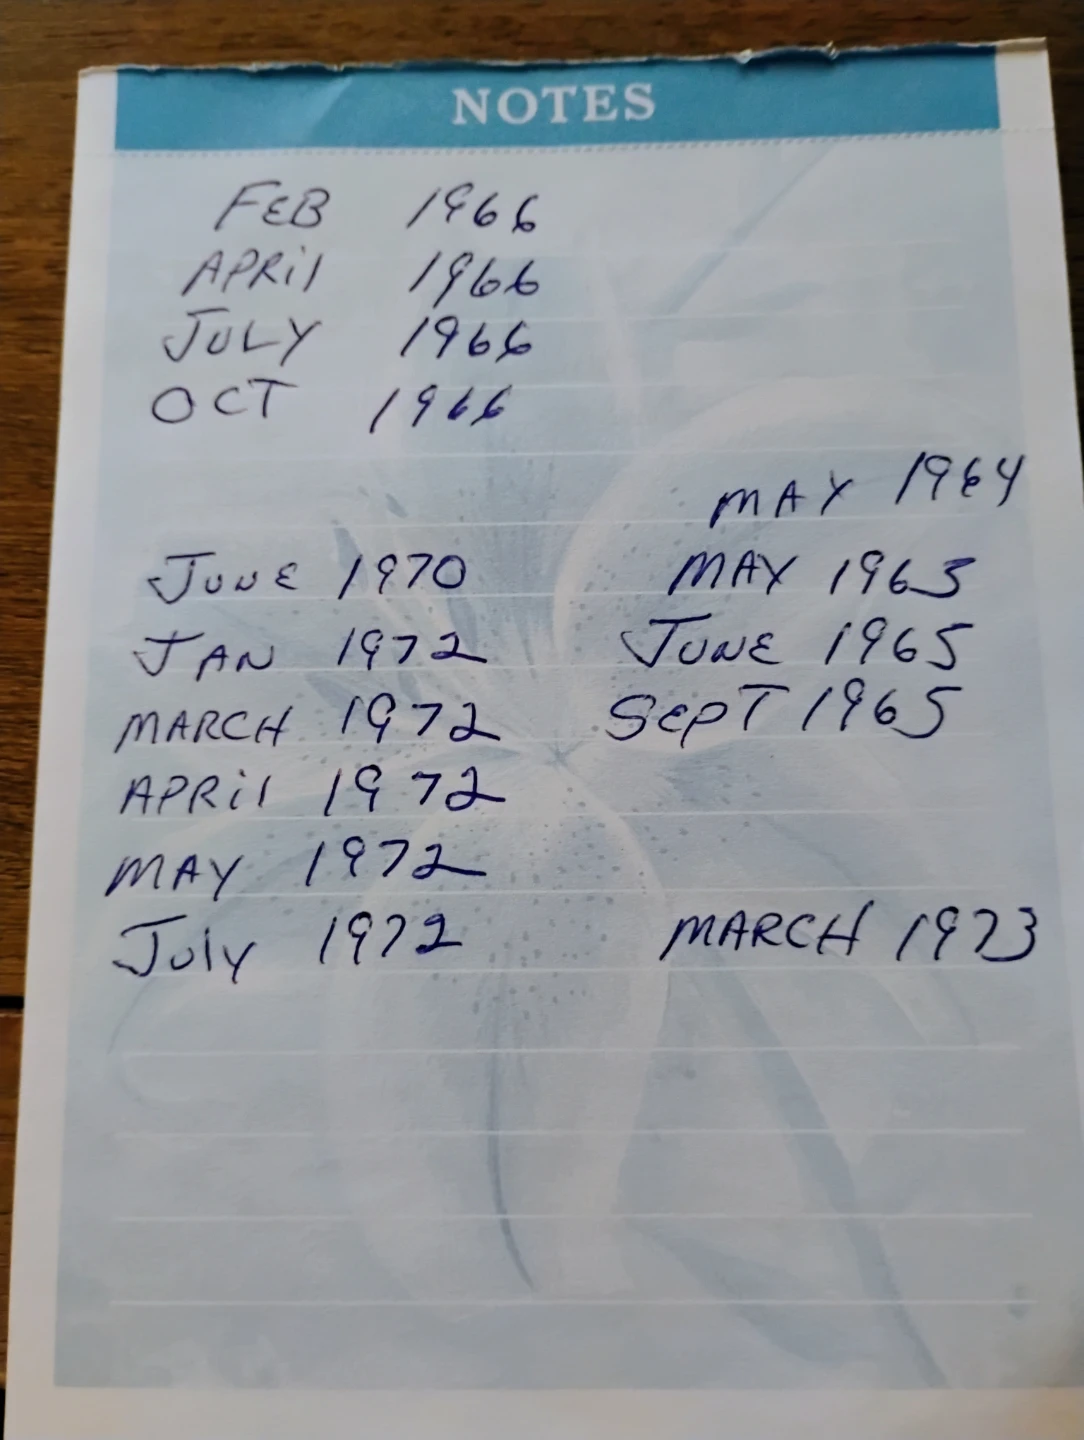 NOTES
FEB 1966
APRil 1966
JULY 1966
OCT 1966
MAY 1964
JUNE 1970 MAY 1965
JAN 1972 JUNE 1965
MARCH 1972 SEPT 1965
APRil 1972
MAY 1972
July 1972 MARCH 1973